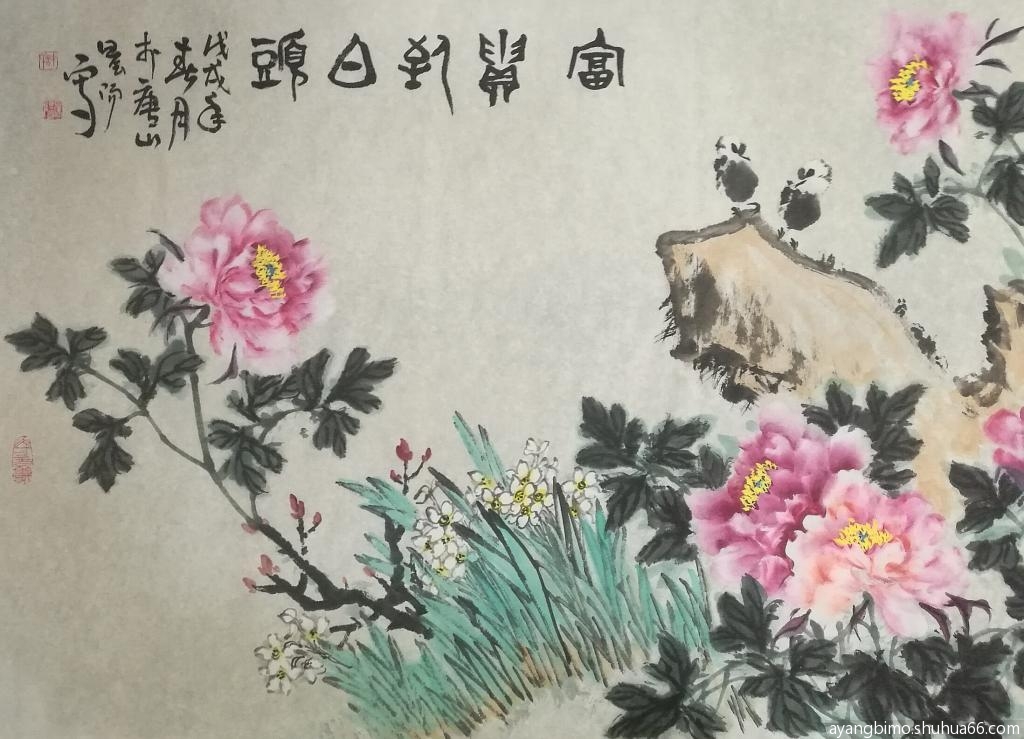 富貴到白頭
戊戌年
春月
於唐山
昱陽
寫
ayangbimo.shuhua66.com